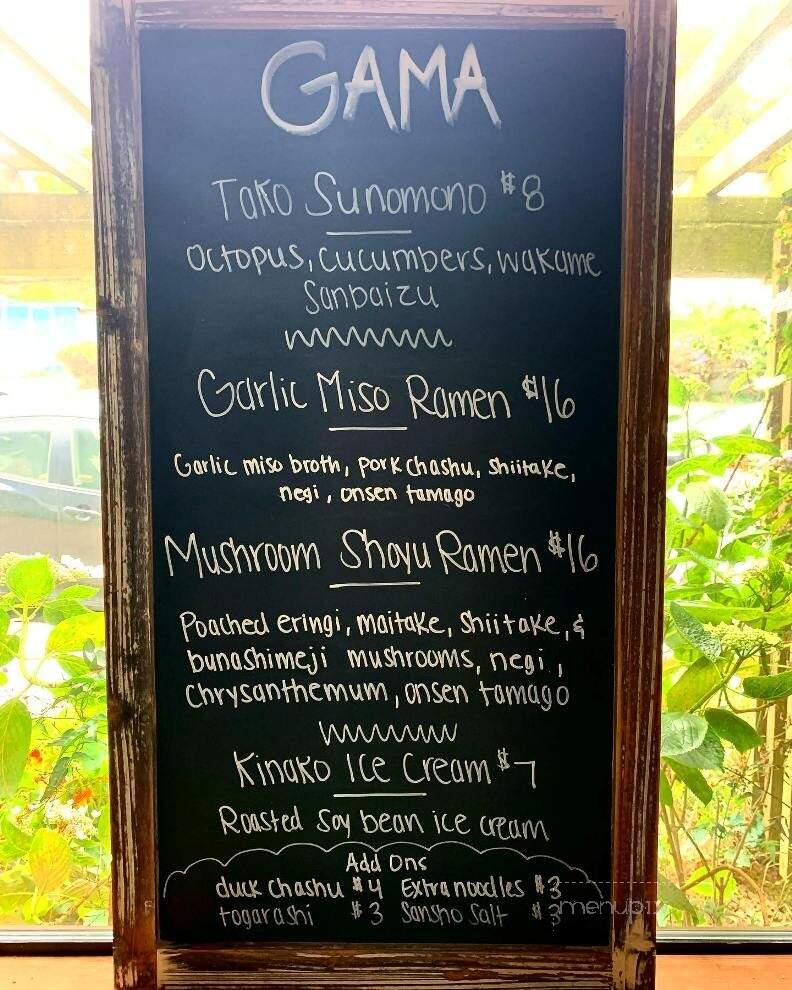 GAMA
Tako Sunomono $8
Octopus, cucumbers, wakame
Sanbaizu
Garlic Miso Ramen $16
Garlic miso broth, pork chashu, shiitake,
negi, onsen tamago
Mushroom Shoyu Ramen $16
Poached eringi, maitake, shiitake, &
bunashimeji mushrooms, negi,
chrysanthemum, onsen tamago
Kinako Ice Cream $7
Roasted Soy bean ice cream
Add Ons
duck chashu $4 Extra noodles $3
togarashi $3 Sansho Salt $3